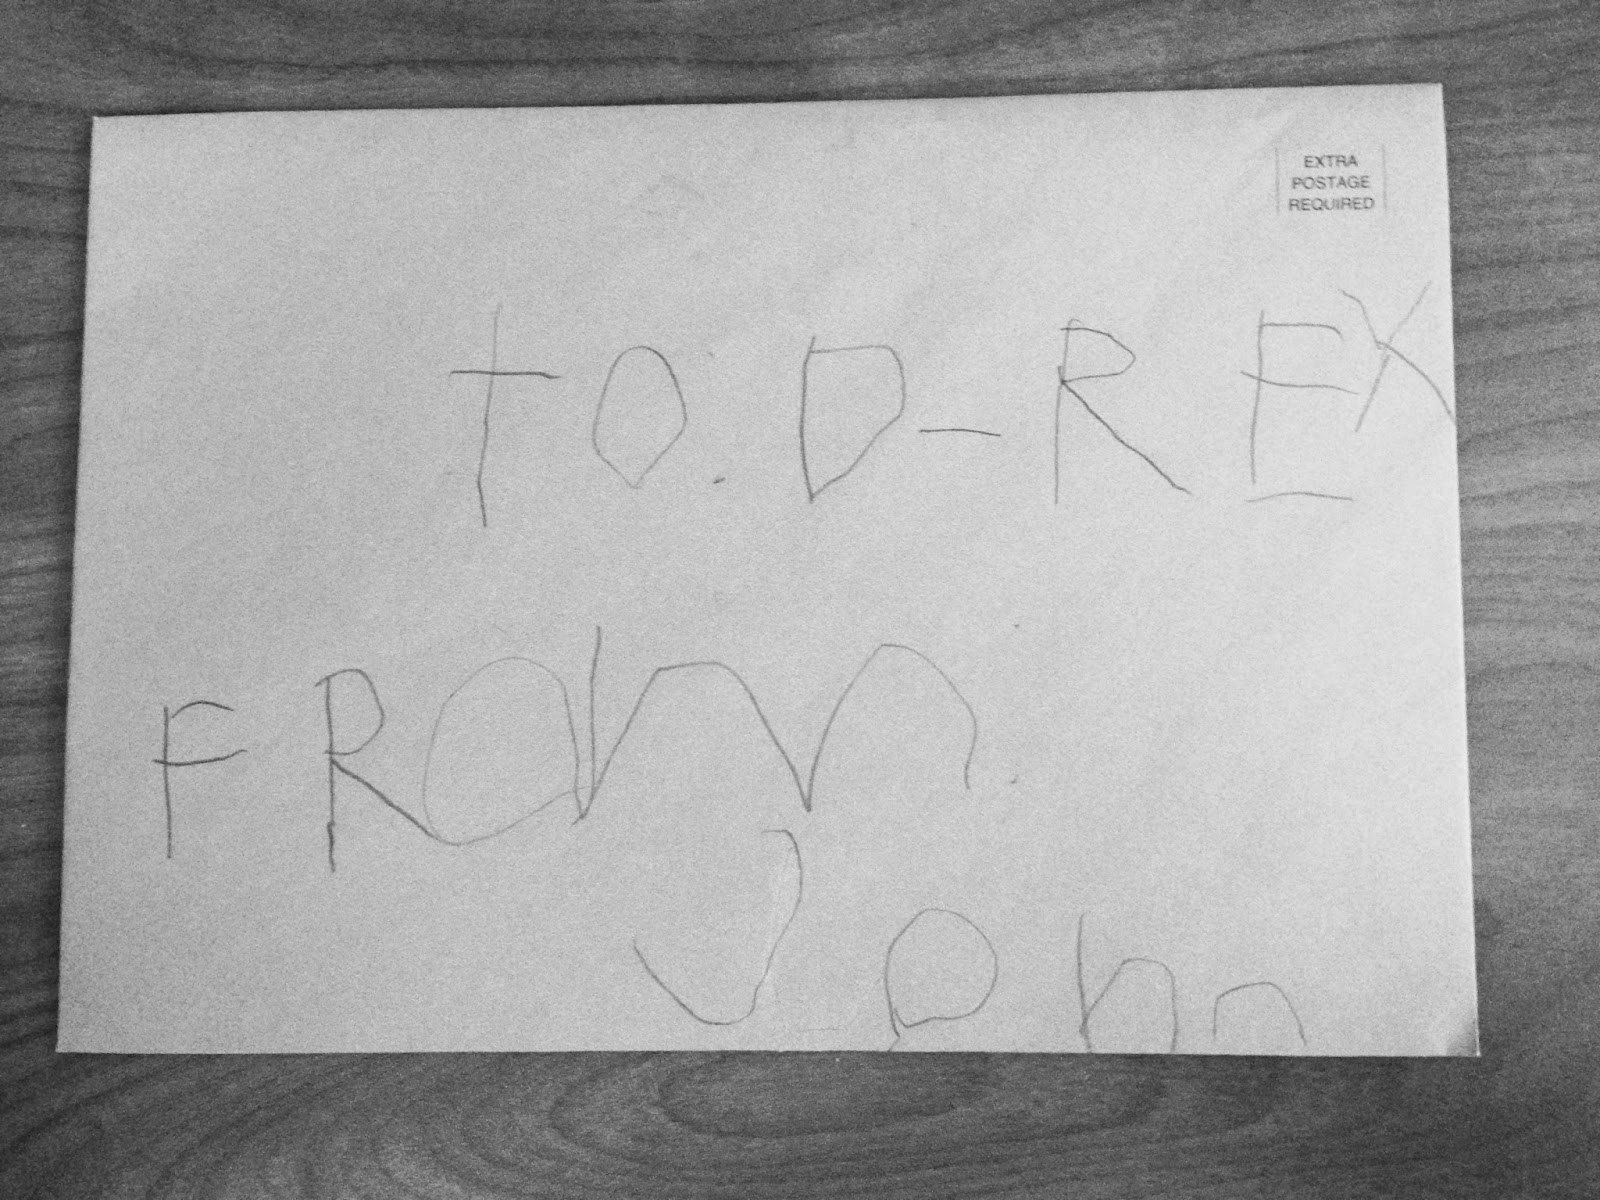 EXTRA
POSTAGE
REQUIRED
TO. D-REX
FROM.
John